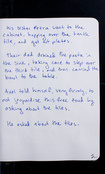 His sister Petra went to the
cabinet, hopping over the tenth
tile, and got out plates.
Their dad drained the pasta in
the sink, taking care to step over
the third tile, and then carried the
bowl to the table.
Axel told himself, very firmly, to
not jeopardize this free meal by
asking about the tiles.
He asked about the tiles.